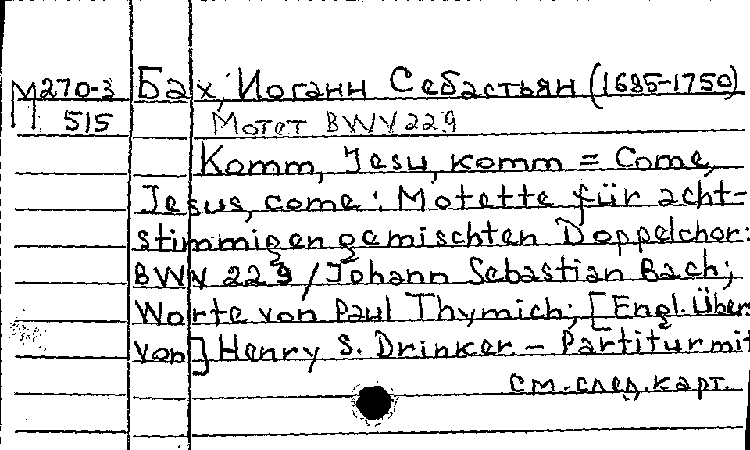 М270-3 Бах, Иоганн Себастьян (1685-1750)
515 Мотет BWV 229
Komm, Jesu, komm = Come,
Jesus, come : Motette für acht-
stimmigen gemischten Doppelchor:
BWV 229 / Johann Sebastian Bach;
Worte von Paul Thymich; [Engl. Übers.
von] Henry S. Drinker. – Partitur mit
см. след. карт.